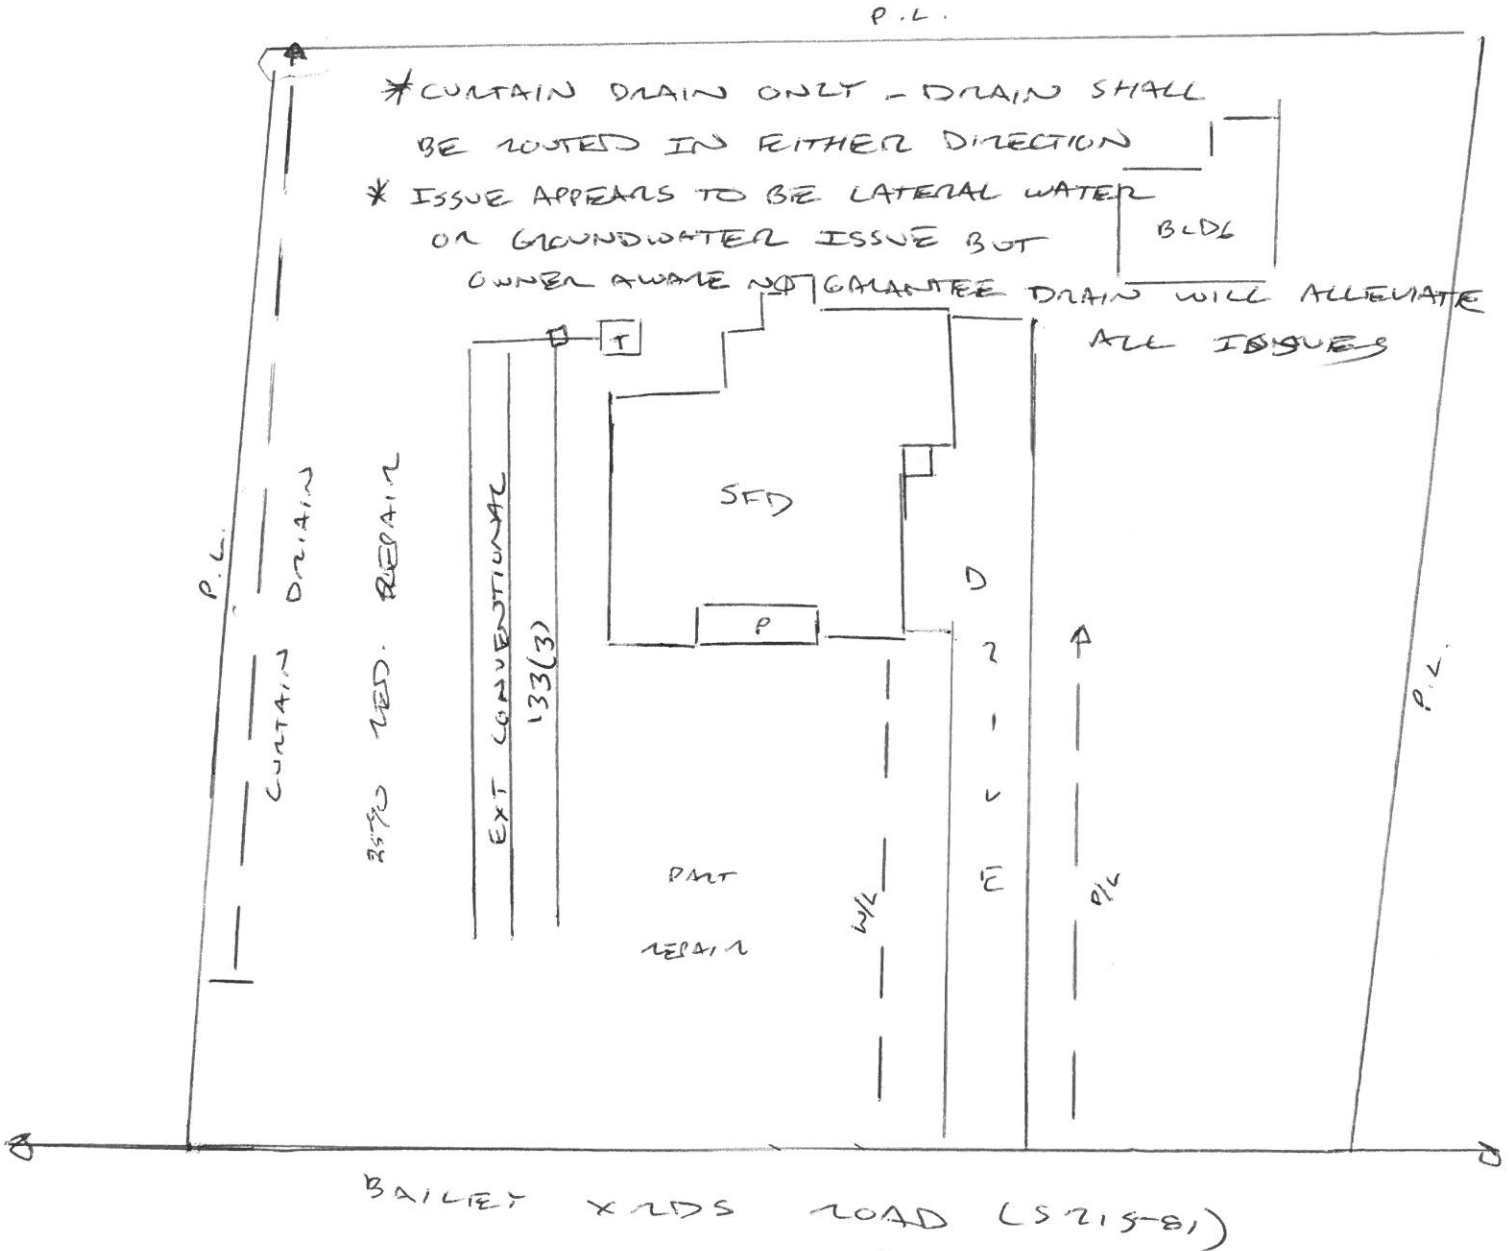 P.L.
* CURTAIN DRAIN ONLY - DRAIN SHALL
BE ROUTED IN EITHER DIRECTION
* ISSUE APPEARS TO BE LATERAL WATER
OR GROUNDWATER ISSUE BUT
OWNER AWARE NOT GARANTEE DRAIN WILL ALLEVIATE
ALL ISSUES
BLDG
T
SFD
P
P.L.
CURTAIN DRAIN
25% RED. REPAIR
EXT CONVENTIONAL
133(3)
PART
REPAIR
W/L
DRIVE
P/L
P.L.
BAILEY XRDS ROAD